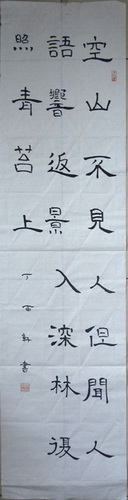 空山不見人但聞人
語響返景入深林復
照青苔上
丁酉軒書